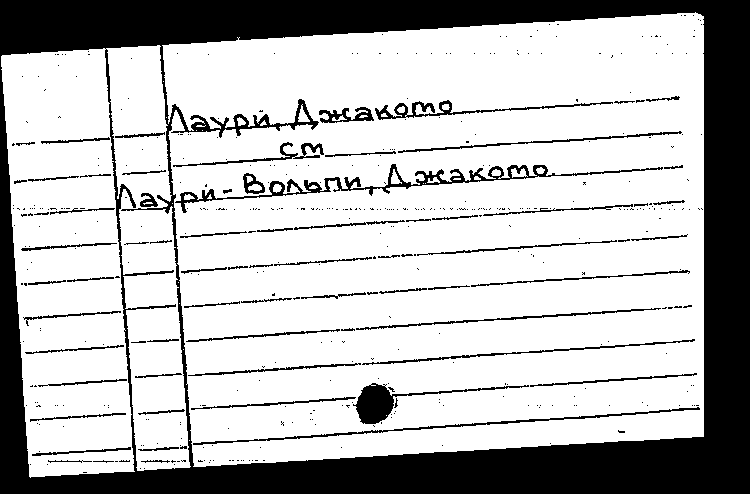 Лаури, Джакомо
см
Лаури-Вольпи, Джакомо.